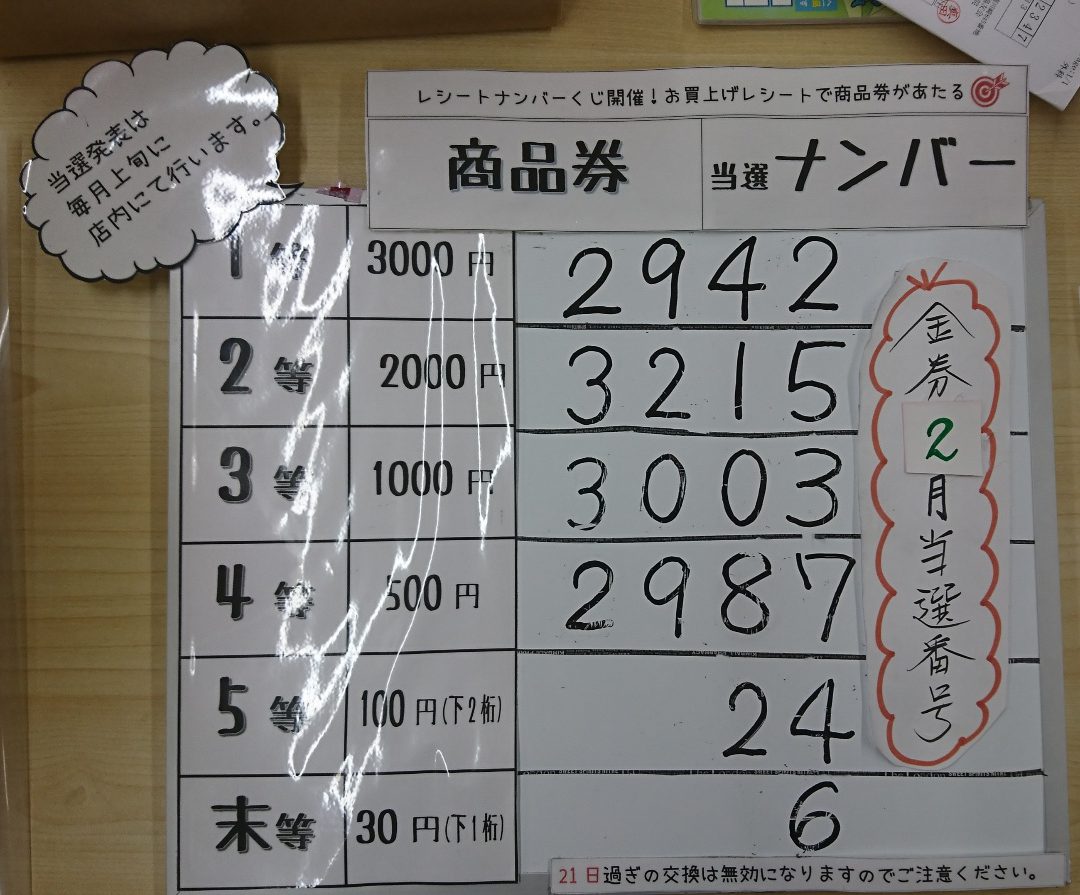 当選発表は
毎月上旬に
店内にて行います。
レシートナンバーくじ開催！お買上げレシートで商品券があたる
商品券 当選ナンバー
1等 3000円 2942
2等 2000円 3215
3等 1000円 3003
4等 500円 2987
5等 100円(下2桁) 24
末等 30円(下1桁) 6
金券2月当選番号
21日過ぎの交換は無効になりますのでご注意ください。